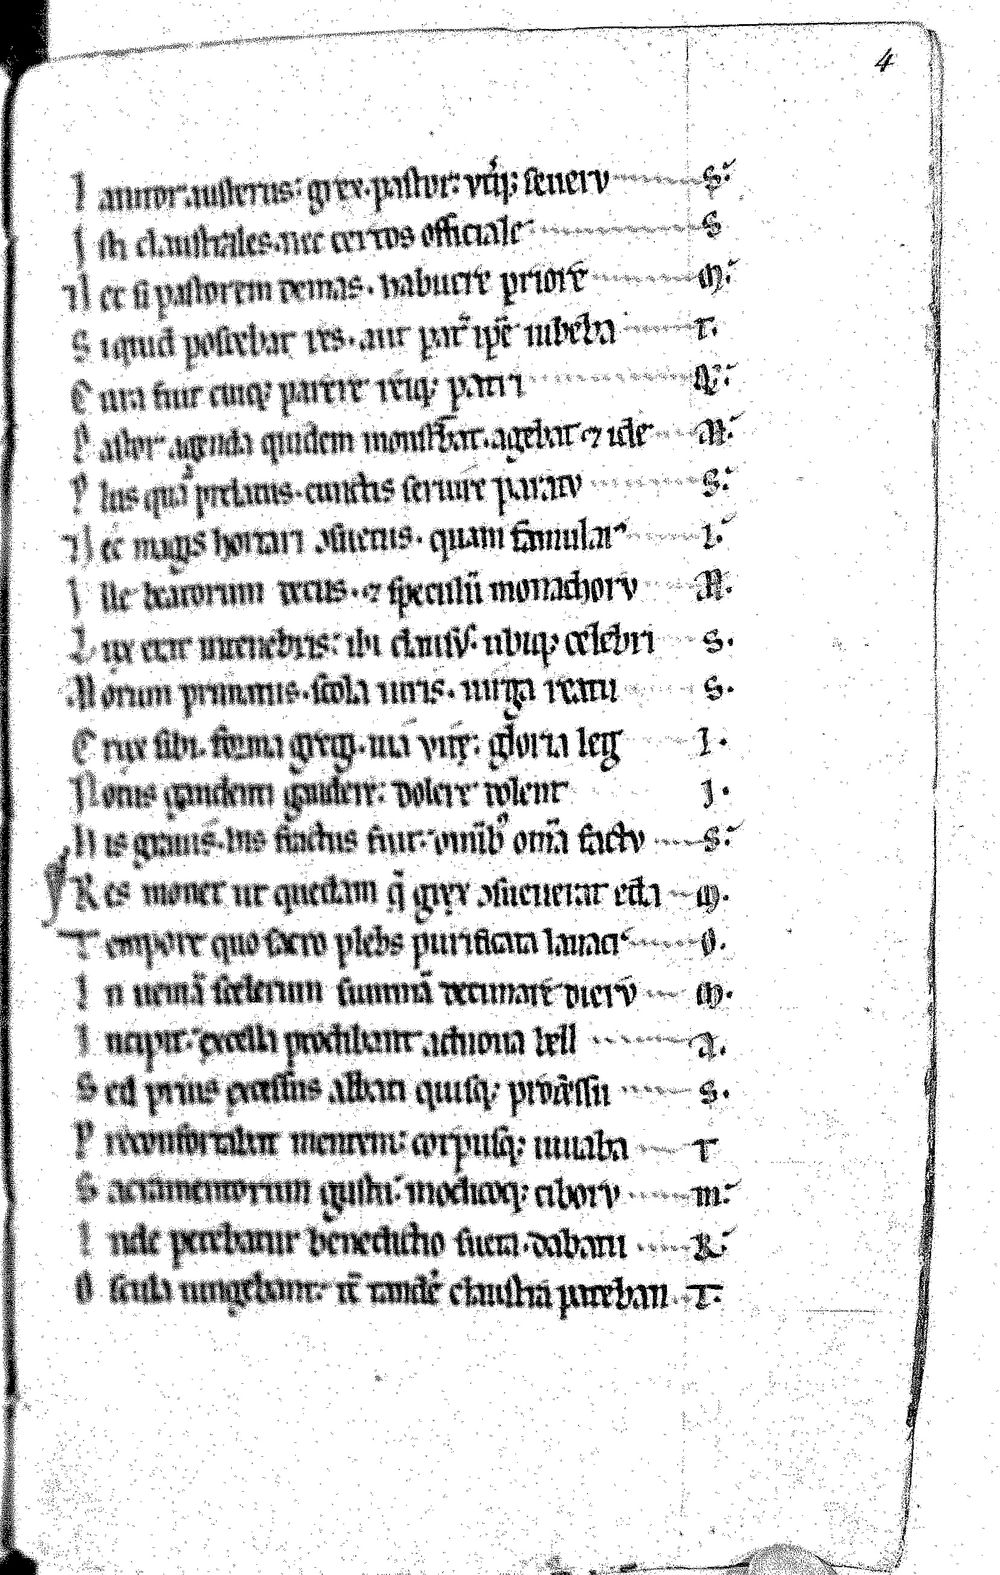 4
I anitor austerus: grex. pastor: vtq; seueru S:
I sti claustrales. nec certos officiale S
N ec si pastorem demas. habuere priore M:
S iquid poscebat res. aut pat ipe iubeba T.
C ura fuit cuiq; parere reiq; patri Q:
P astor agenda quidem monstbat. agebat ⁊ ide M:
P lus qua prelatus. cunctis seruire paratu S:
N ec magis hortari ɔsuetus. quam famulari I:
I lle beatorum decus. ⁊ speculū monachoru M.
L ux erat in tenebris: ibi clausus. ubiq; celebri S.
M orum primatus. scola iuris. uirga reatu S.
C rux sibi. forma gregi. uia vite: gloria leg I.
N onis gaudenti gaudere: dolere dolent I.
H is grauis. his fractus fuit: omib; oma factu S:
R es monet ut quedam q̄ grex ɔsueuerat edā M.
T empore quo sacro plebs purificata lauac O.
I n ueniā scelerum summā decimare dieru M.
I ncipit: excelsa prodibant actiona bell A.
S ed prius excessus albati quisq; professu S.
P reconfortabat mentem: corpusq; iuuaba T
S acramentorum gustu: modicoq; ciboru m:
I nde petebatur benedictio sueta. dabatu R:
O scula iungebant: tc̄ tandē claustra pateban T.